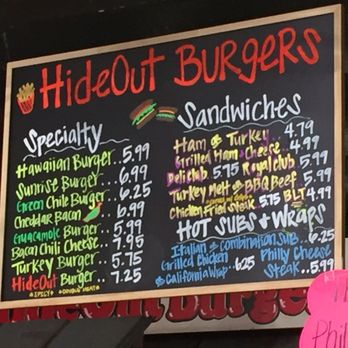 HideOut Burgers
Specialty
Hawaiian Burger..5.99
Sunrise Burger...6.99
Green Chile Burger..6.25
Cheddar Bacon 6.99
Guacamole Burger..5.99
Bacon Chili Cheese..7.95
Turkey Burger...5.75
HideOut Burger...7.25
*SPICY* *DOUBLE MEAT*
Sandwiches
Ham or Turkey...4.79
Grilled Ham & Cheese..4.99
Deli Club 5.75 Royal Club..5.99
Turkey Melt or BBQ Beef 5.99
Chicken Fried Steak 5.75 BLT 4.99
HOT SUBS & WRAPS
Italian or Combination Sub..6.25
Grilled Chicken 6.25 Philly Cheese
& California Wrap Steak..5.99
HideOut Burgers
Phil